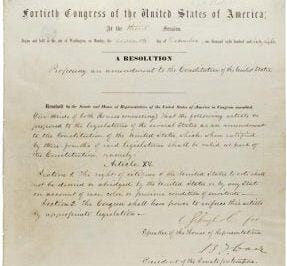 Fortieth Congress of the United States of America;
At the third Session,
Begun and held at the city of Washington, on Monday, the seventh day of December, one thousand eight hundred and sixty-eight.
A RESOLUTION
Proposing an amendment to the Constitution of the United States.
Resolved by the Senate and House of Representatives of the United States of America in Congress assembled,
(two-thirds of both Houses concurring) That the following article be
proposed to the legislatures of the several States as an amendment
to the Constitution of the United States which, when ratified
by three fourths of said legislatures shall be valid as part of
the Constitution, namely:
Article XV.
Section 1. The right of citizens of the United States to vote shall
not be denied or abridged by the United States or by any State
on account of race, color, or previous condition of servitude.
Section 2. The Congress shall have power to enforce this article
by appropriate legislation.
Speaker of the House of Representatives
President of the Senate pro tempore